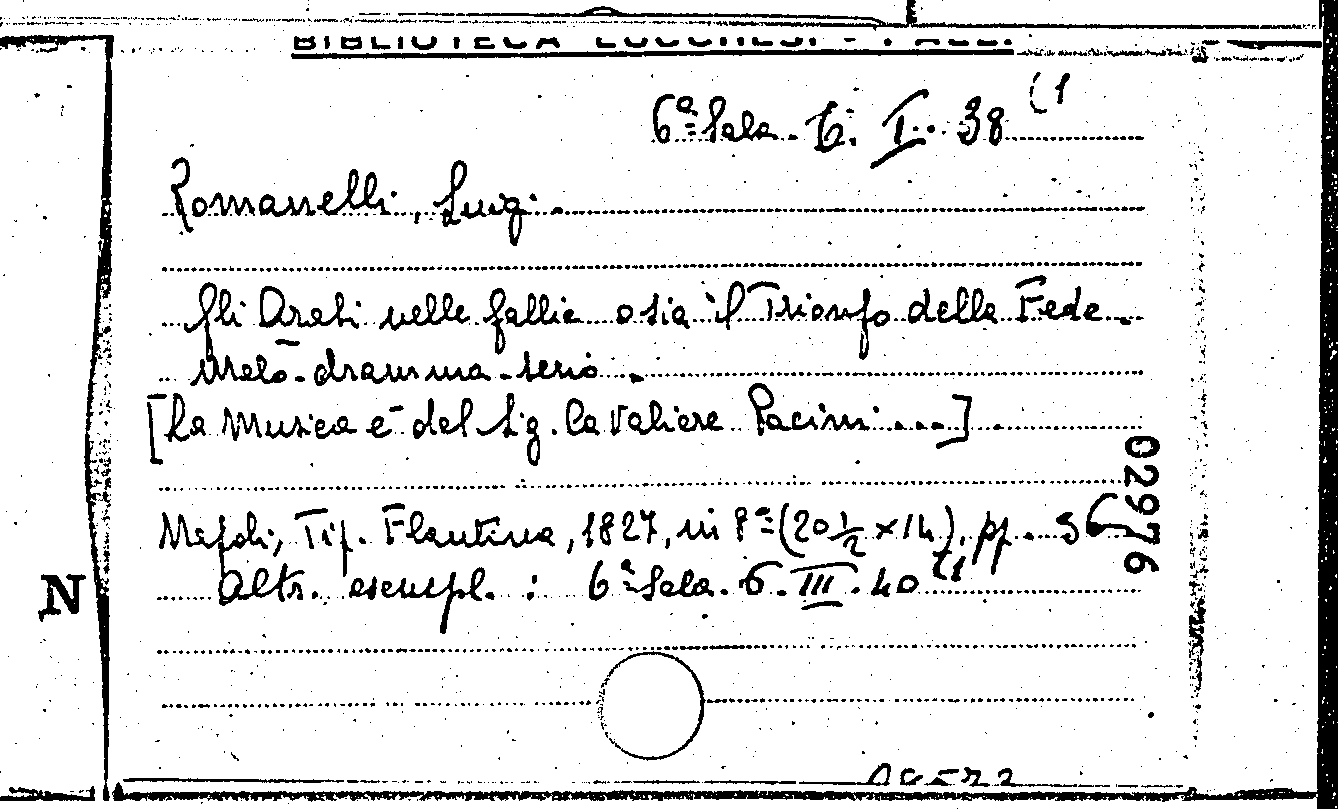 BIBLIOTECA LUCCHESI - PALLI
6ª Sala. 6. I. 38 (1
Romanelli, Luigi.
Gli Arabi nelle Gallie osia il Trionfo della Fede.
Melo-dramma-serio.
[La Musica è del Sig. Cavaliere Pacini ...]
Napoli, Tip. Flautina, 1827, in 8º (20½ x 14), pp. 36
Altr. esempl. : 6ª Sala. 6. III. 40 (1
02976
N